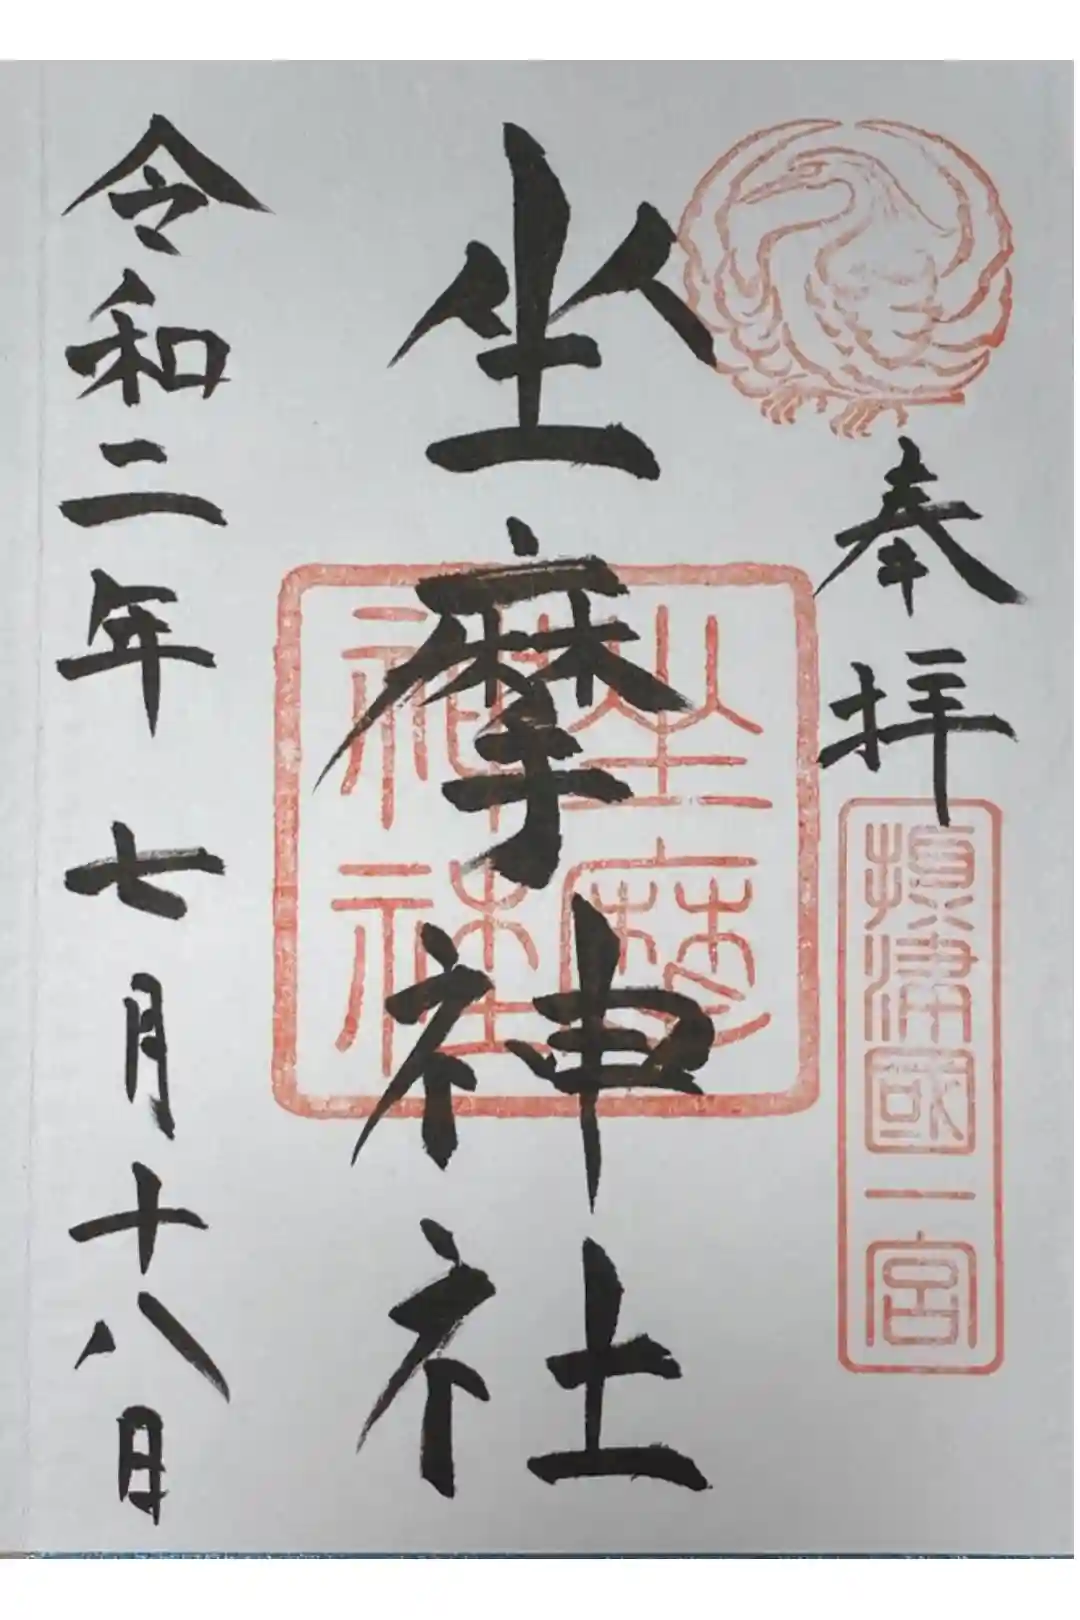 奉拝
攝津國一宮
坐摩神社
坐摩神社
令和二年七月十八日